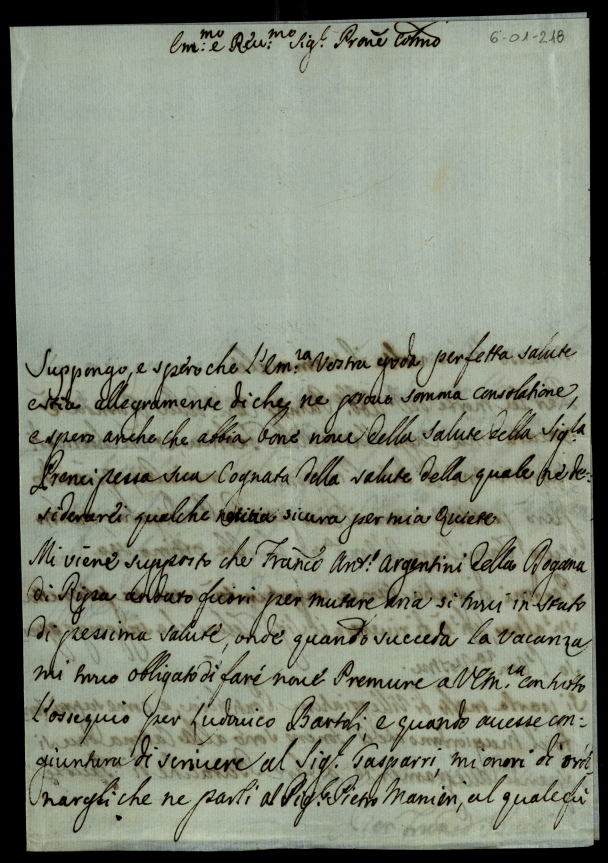 6-01-218
Em.mo e Rev.mo Sig.r Prone Colmo
Suppongo, e spero che l'Em.za Vostra goda perfetta salute
e stia allegramente di che ne provo somma consolatione,
e spero anche che abbia bone nove della salute della Sig.ra
Prencipessa sua Cognata della salute della quale ne de-
siderarei qualche notitia sicura per mia Quiete
Mi viene supposto che Franco Ant.o Argentini della Dogana
di Ripa andato fuori per mutare aria si trovi in stato
di pessima salute, onde quando succeda la vacanza
mi trovo obligato di fare nove Premure a VEm.za con tutto
l'ossequio per Ludovico Bartoli, e quando avesse con-
giuntura di scrivere al Sig.r Gasparri, mi onori di ordi-
nargli che ne parli al Sig.r Pietro Manieri, al quale fu